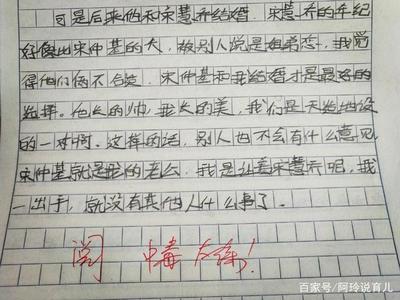 可是后来他和宋慧乔结婚．宋慧乔的年纪
好像比宋仲基的大，被别人说是姐弟恋，我觉
得他们俩不合适．宋仲基和我结婚才是最好的
选择．他长的帅，我长的美，我们是天造地设
的一对啊．这样的话，别人也不会有什么意见．
宋仲基就是我的老公．我是让着宋慧乔呢，我
一出手，就没有其他人什么事了．
阅 中毒太深！
百家号/阿玲说育儿